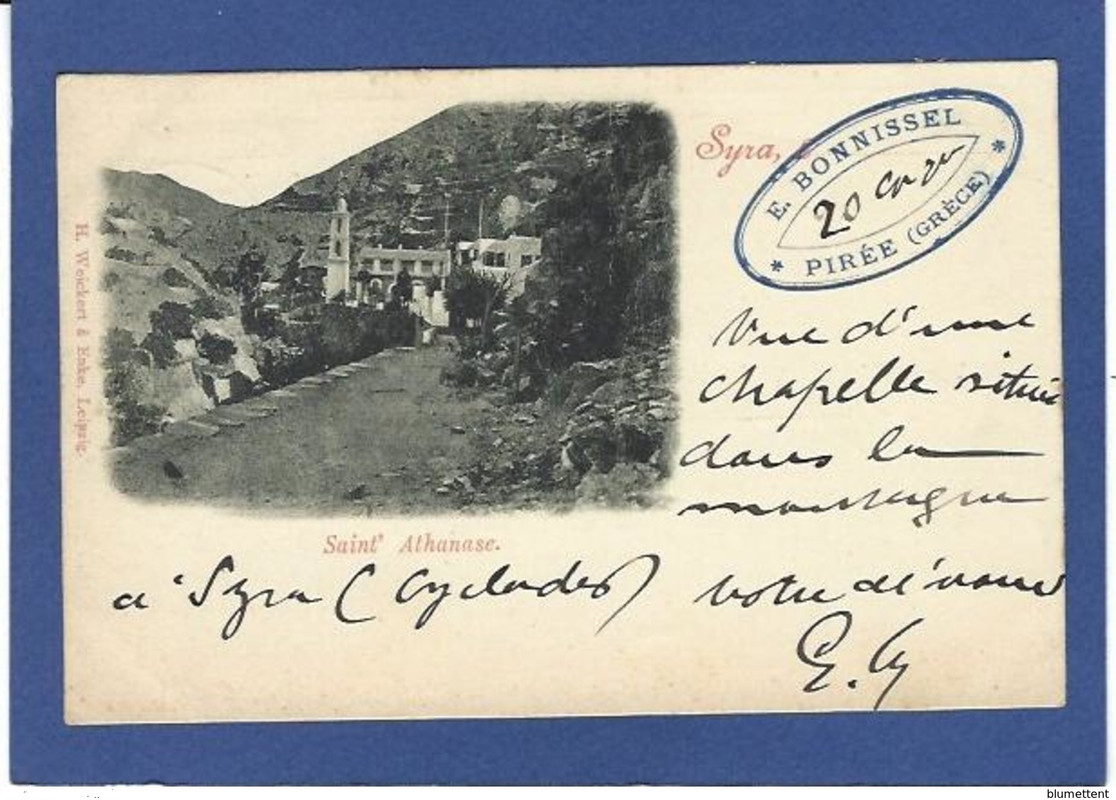 Syra,
E. BONNISSEL
PIRÉE (GRÈCE)
H. Weickert & Enke. Leipzig.
Vue d'une
chapelle située
dans la
montaigne
Saint' Athanase.
à Syra (Cyclades) votre dévoué
blumettent